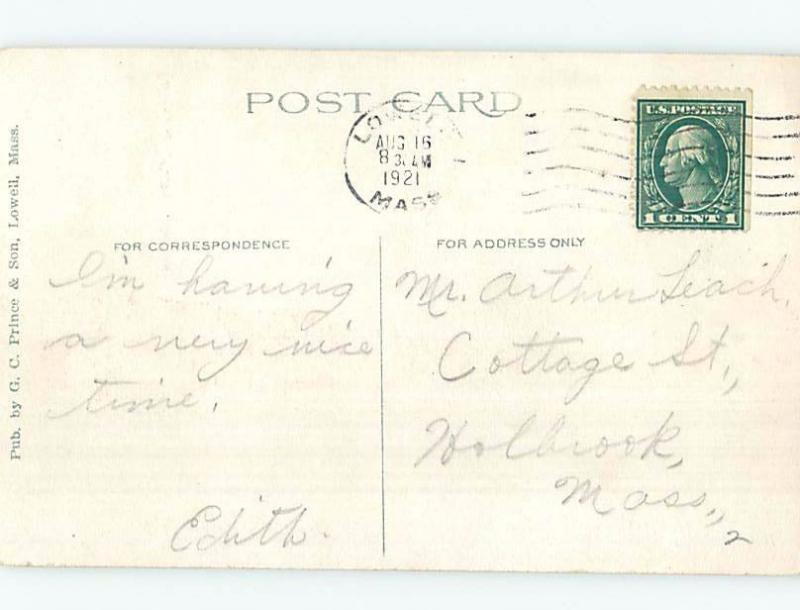 POST CARD
LOWELL
AUG 16
8 30 AM
1921
MASS
U.S. POSTAGE
1 CENT 1
Pub. by G. C. Prince & Son, Lowell, Mass.
FOR CORRESPONDENCE
I'm having
a very nice
time.
Edith.
FOR ADDRESS ONLY
Mr. Arthur Leach,
Cottage St.,
Holbrook,
Mass.,
2